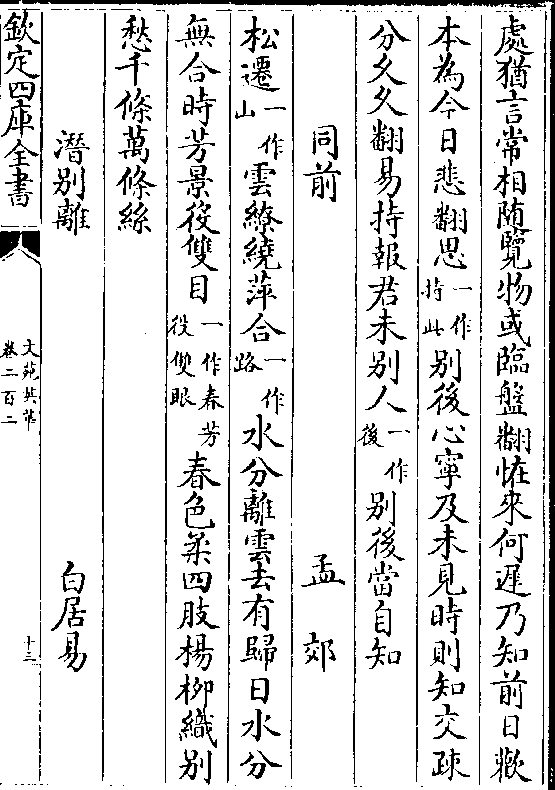 處猶言常相随覽物或臨盤翻恠來何遲乃知前日歡
本為今日悲翻思一作持此别後心寧及未見時則知交疎
分久久翻易持報君未别人一作後别後當自知
同前　孟郊
松遷一作山雲繚繞萍合一作路水分離雲去有歸日水分
無合時芳景役雙目一作春芳役雙眼春色柔四肢楊柳織别
愁千條萬條絲
潛别離　白居易
欽定四庫全書
文苑英華
卷二百二
十三